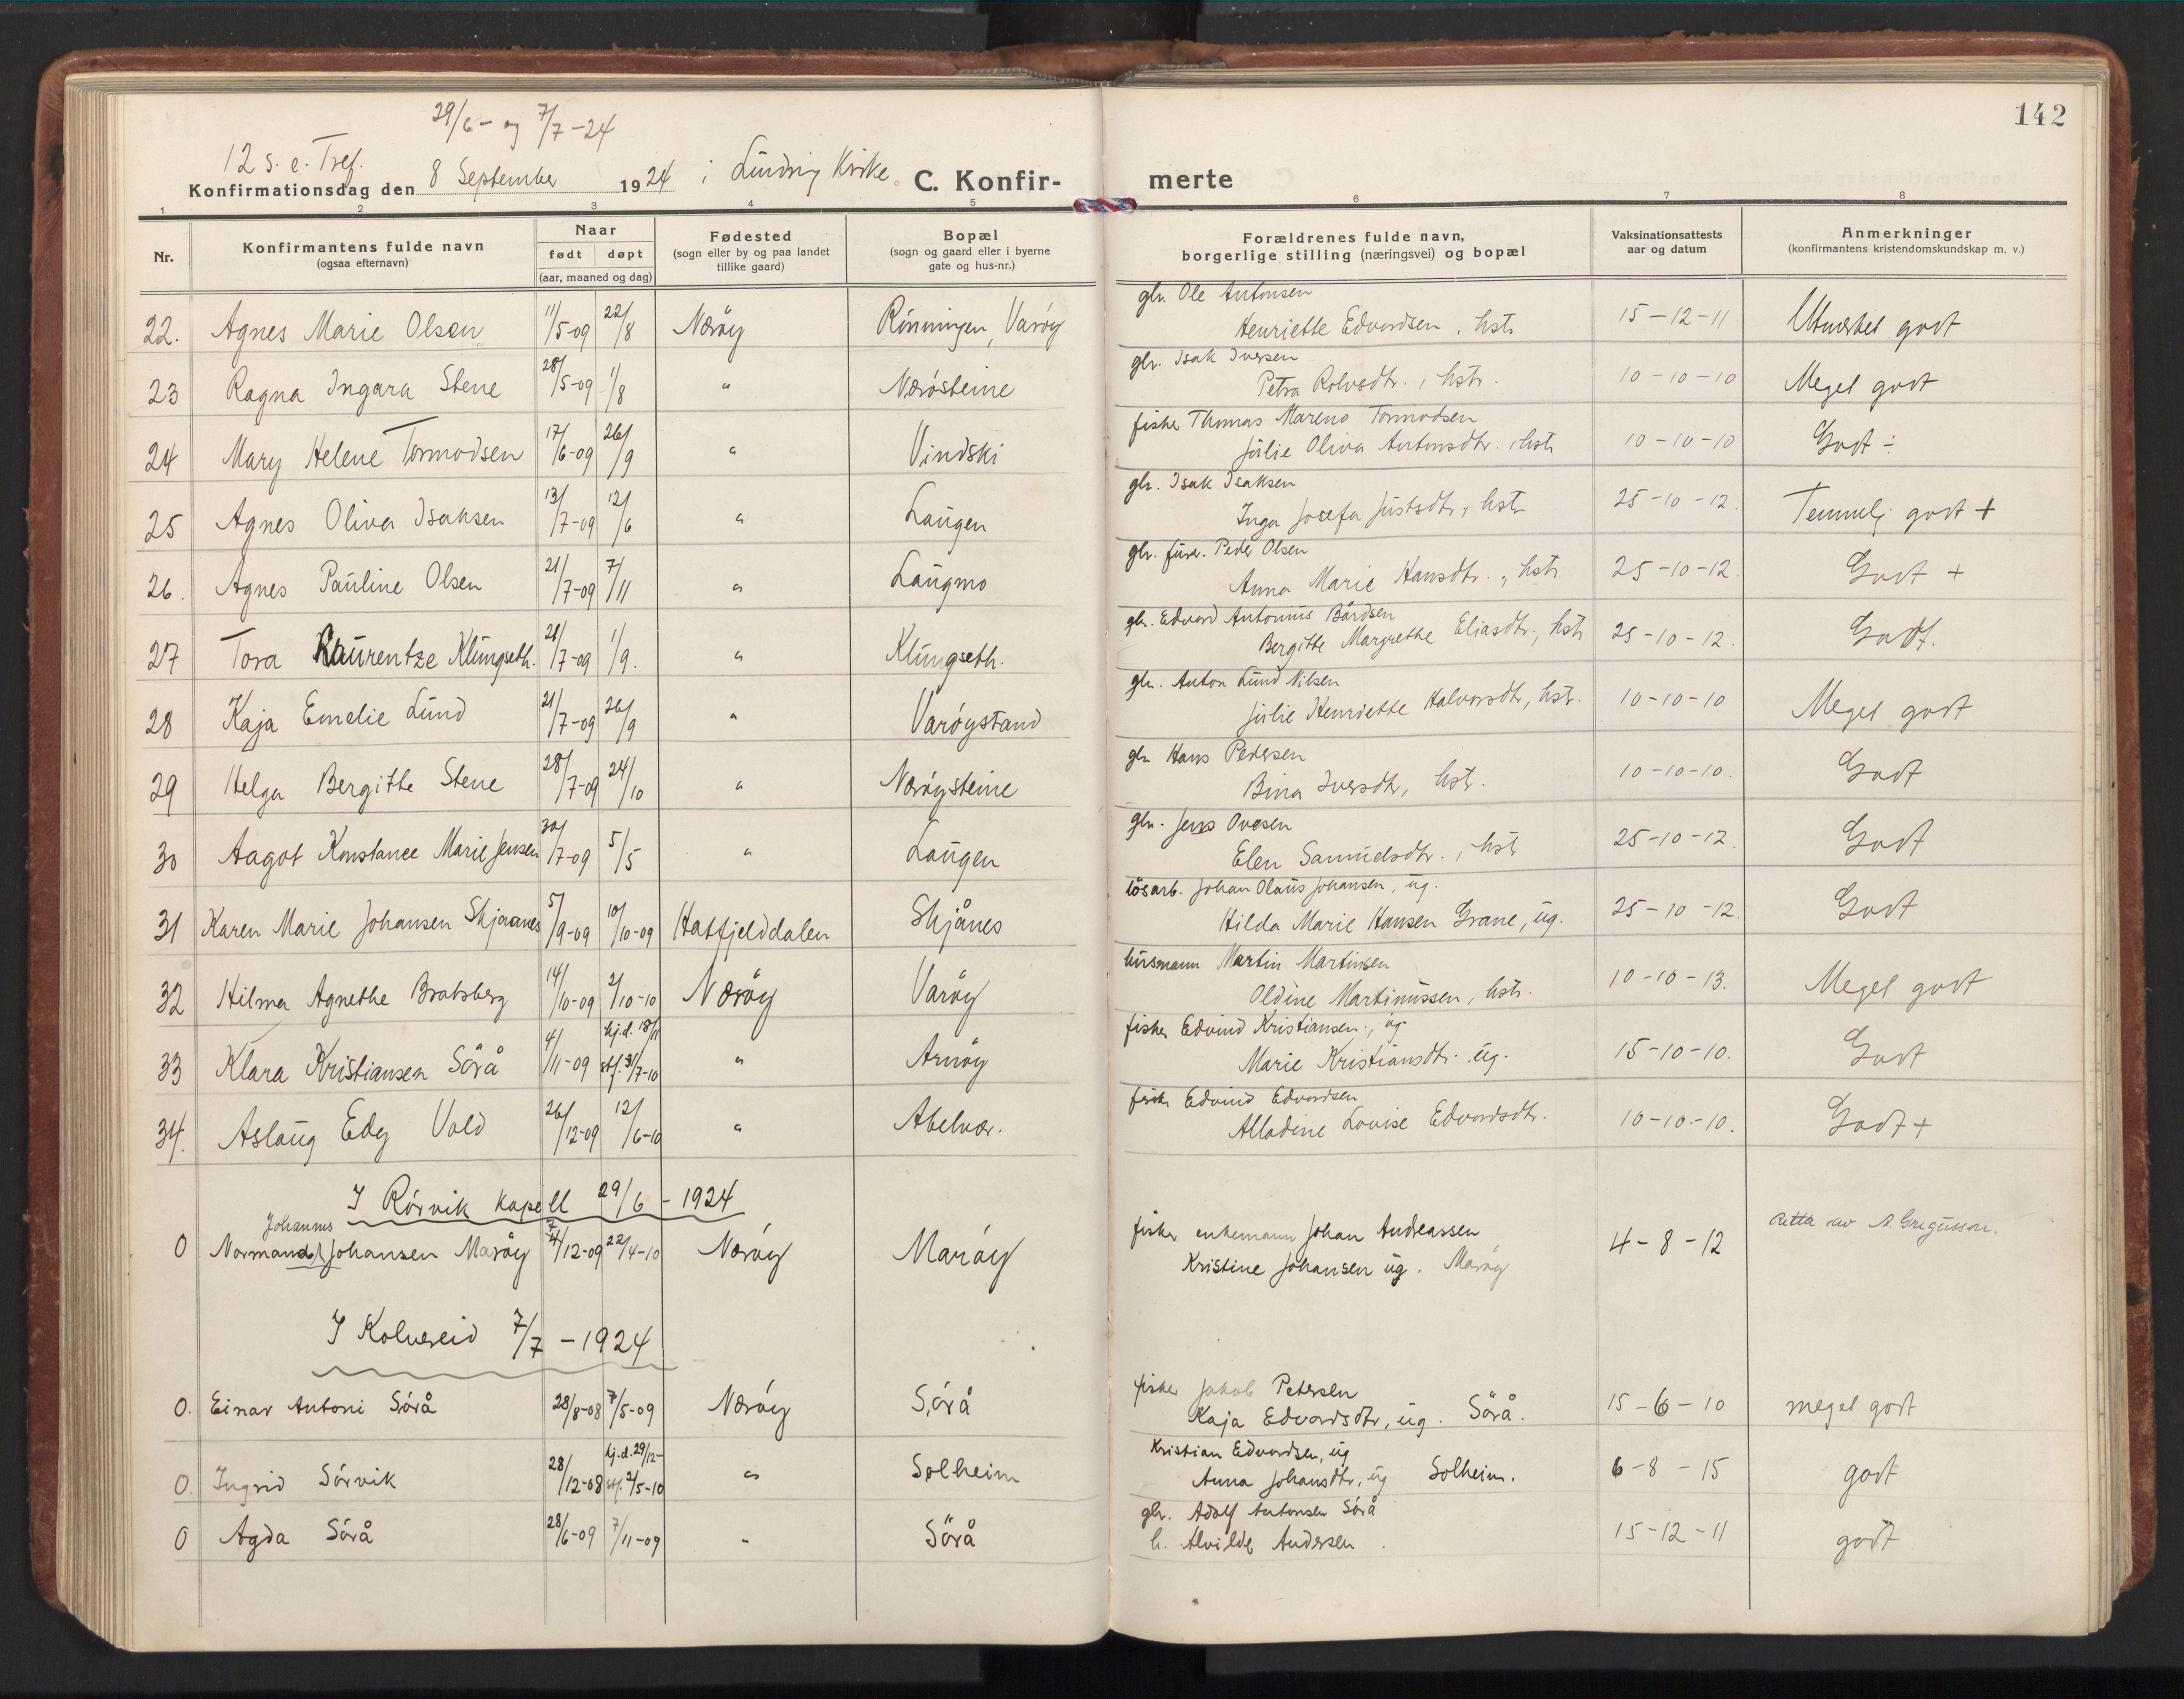 142
29/6- og 7/7-24
12 s. e. Tref.
Konfirmationsdag den 8 September 1924 i Lundring Kirke. C. Konfir-merte
1 2 3 4 5 6 7 8
Nr.
Konfirmantens fulde navn
(ogsaa efternavn)
Naar
født døpt
(aar, maaned og dag)
Fødested
(sogn eller by og paa landet
tillike gaard)
Bopæl
(sogn og gaard eller i byerne
gate og hus-nr.)
Forældrenes fulde navn,
borgerlige stilling (næringsvei) og bopæl
Vaksinationsattests
aar og datum
Anmerkninger
(konfirmantens kristendomskundskap m. v.)
22. Agnes Marie Olsen 11/5-09 22/8 Nærøy Rønningen, Varøy gbr. Ole Antonsen
Henriette Edvardsen, hstr 15-12-11 Utmerket godt
23 Ragna Ingara Stene 28/5-09 1/8 " Nærøsteine gbr. Isak Iversen
Petra Rolvsdtr., hstr. 10-10-10 Meget godt
24 Mary Helene Tormodsen 17/6-09 26/9 " Vindski fisker Thomas Mareno Tormodsen
Julie Oliva Antonsdtr. hstr 10-10-10 Godt ÷
25 Agnes Oliva Isaksen 13/7-09 12/6 " Laugen gbr. Isak Isaksen
Inga Josefa Justsdtr, hstr 25-10-12. Temmelig godt +
26. Agnes Pauline Olsen 21/7-09 7/11 " Laugmo gbr. fisker. Peder Olsen
Anna Marie Hansdtr., hstr 25-10-12. Godt +
27 Tora Laurentze Klungseth. 21/7-09 1/9. " Klungseth. gbr. Edvard Antonius Bårdsen
Bergitte Margrethe Eliasdtr., hstr 25-10-12. Godt.
28 Kaja Emelie Lund 21/7-09 26/9 " Varøystrand gbr. Anton Lund Nilsen
Julie Henriette Halvorsdtr, hstr. 10-10-10 Meget godt
29 Helga Bergitte Stene 28/7-09 24/10 " Nærøysteine gbr Hans Pedersen
Bina Iversdtr, hstr. 10-10-10. Godt
30 Aagot Konstance Marie Jensen 30/7-09 5/5 " Laugen gbr. Jens Ovesen
Elen Samuelsdtr., hstr 25-10-12. Godt
31 Karen Marie Johansen Skjaanes 5/9-09 10/10-09 Hatfjelddalen Skjånes løsarb. Johan Olaus Johansen, ug.
Hilda Marie Hansen Grane, ug. 25-10-12. Godt
32 Hilma Agnethe Bratsberg 14/10-09 2/10-10 Nærøy Varøy husmann Martin Martinsen
Oldine Martinussen, hstr. 10-10-13. Meget godt
33 Klara Kristiansen Sørå 4/11-09 hj.d. 18/11 stf. 31/7-10 " Arnøy fisker Edvind Kristiansen, ug.
Marie Kristiansdtr. ug. 15-10-10. Godt
34. Aslaug Edy Vold 26/12-09 12/6-10 " Abelvær. fisker Edvind Edvardsen
Alladine Lovise Edvardsdtr. 10-10-10. Godt +
I Rørvik kapell 29/6 - 1924
Johannes
0 Normand Johansen Marøy 7/12-09 22/4-10 Nærøy Marøy fisker enkemann Johan Andreassen
Kristine Johansen ug. Marøy 4-8-12 Rettet av A. Gregusson.
I Kolvereid 7/7 - 1924
0. Einar Antoni Sørå 28/8-08 7/5-09 Nærøy Sørå fisker Jakob Petersen
Kaja Edvardsdtr, ug. Sørå. 15-6-10 meget godt
0. Ingrid Sørvik 28/12-08 hj.d. 29/12- stf. 2/5-10 " Solheim Kristian Edvardsen, ug
Anna Johansdtr, ug Solheim. 6-8-15 godt
0 Agda Sørå 28/6-09 7/11-09 " Sørå gbr. Adolf Antonsen Sørå
h. Alvilde Andersen. 15-12-11 godt